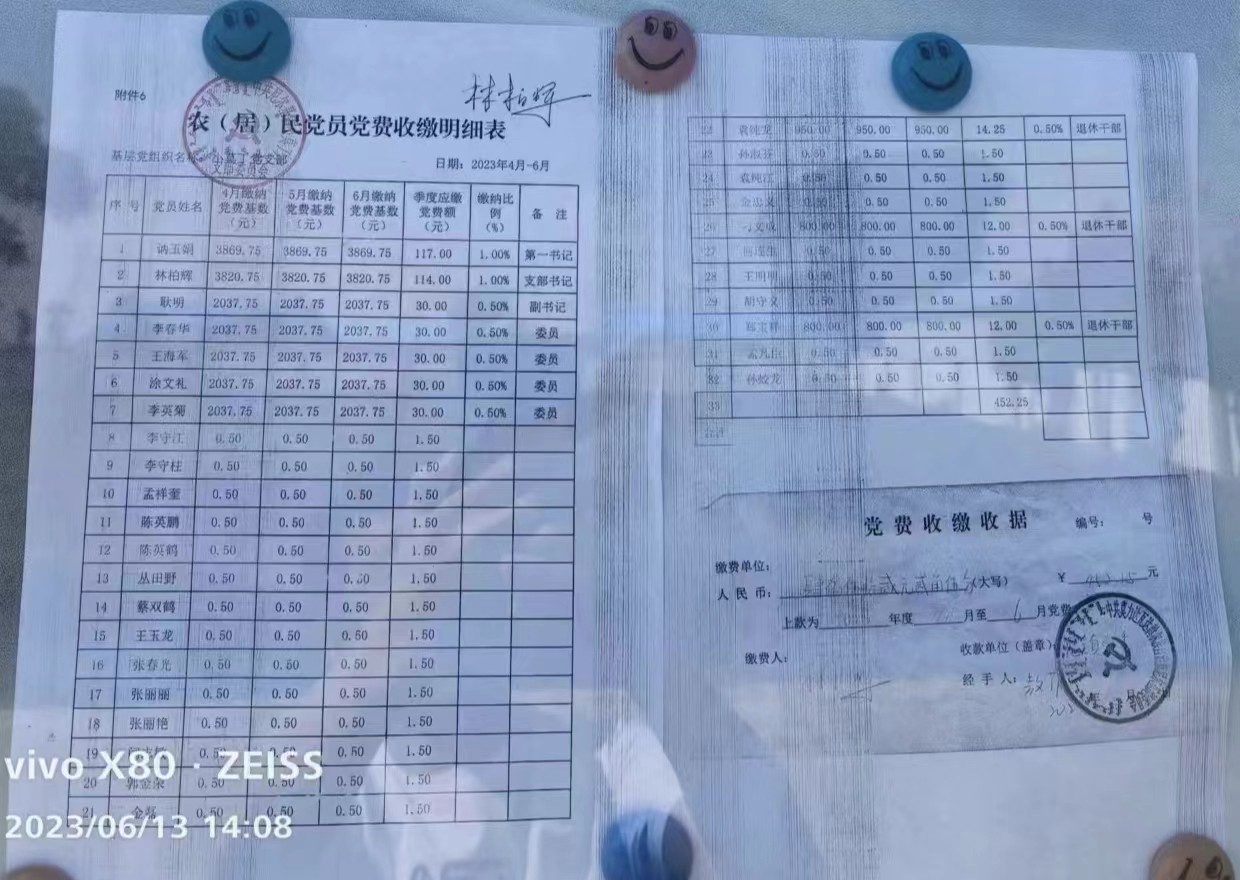 附件6
林柏辉
农（居）民党员党费收缴明细表
基层党组织名称： 党支部
日期：2023年4月-6月
序 号 党员姓名 4月缴纳党费基数（元） 5月缴纳党费基数（元） 6月缴纳党费基数（元） 季度应缴党费额（元） 缴纳比例（%） 备 注
1 讷玉娟 3869.75 3869.75 3869.75 117.00 1.00% 第一书记
2 林柏辉 3820.75 3820.75 3820.75 114.00 1.00% 支部书记
3 耿明 2037.75 2037.75 2037.75 30.00 0.50% 副书记
4 李春华 2037.75 2037.75 2037.75 30.00 0.50% 委员
5 王海军 2037.75 2037.75 2037.75 30.00 0.50% 委员
6 涂文礼 2037.75 2037.75 2037.75 30.00 0.50% 委员
7 李英菊 2037.75 2037.75 2037.75 30.00 0.50% 委员
8 李守江 0.50 0.50 0.50 1.50
9 李守柱 0.50 0.50 0.50 1.50
10 孟祥奎 0.50 0.50 0.50 1.50
11 陈英鹏 0.50 0.50 0.50 1.50
12 陈英鹤 0.50 0.50 0.50 1.50
13 丛田野 0.50 0.50 0.50 1.50
14 蔡双鹤 0.50 0.50 0.50 1.50
15 王玉龙 0.50 0.50 0.50 1.50
16 张春光 0.50 0.50 0.50 1.50
17 张丽丽 0.50 0.50 0.50 1.50
18 张丽艳 0.50 0.50 0.50 1.50
19 0.50 0.50 0.50 1.50
20 郭金荣 0.50 0.50 0.50 1.50
21 金磊 0.50 0.50 0.50 1.50
22 袁纯龙 950.00 950.00 950.00 14.25 0.50% 退休干部
23 孙淑芬 0.50 0.50 0.50 1.50
24 袁纯江 0.50 0.50 0.50 1.50
25 金忠义 0.50 0.50 0.50 1.50
26 800.00 800.00 800.00 12.00 0.50% 退休干部
27 0.50 0.50 1.50
28 王明明 0.50 0.50 0.50 1.50
29 胡守义 0.50 0.50 0.50 1.50
30 800.00 800.00 800.00 12.00 0.50% 退休干部
31 孟凡臣 0.50 0.50 0.50 1.50
32 孙蛟龙 0.50 0.50 0.50 1.50
33 452.25
合计
党费收缴收据
编号： 号
缴费单位：
人民币： (大写) ￥ 元
上款为 年度 月至 6 月党费
缴费人：
收款单位（盖章）
经手人：
年 月
vivo X80 · ZEISS
2023/06/13 14:08